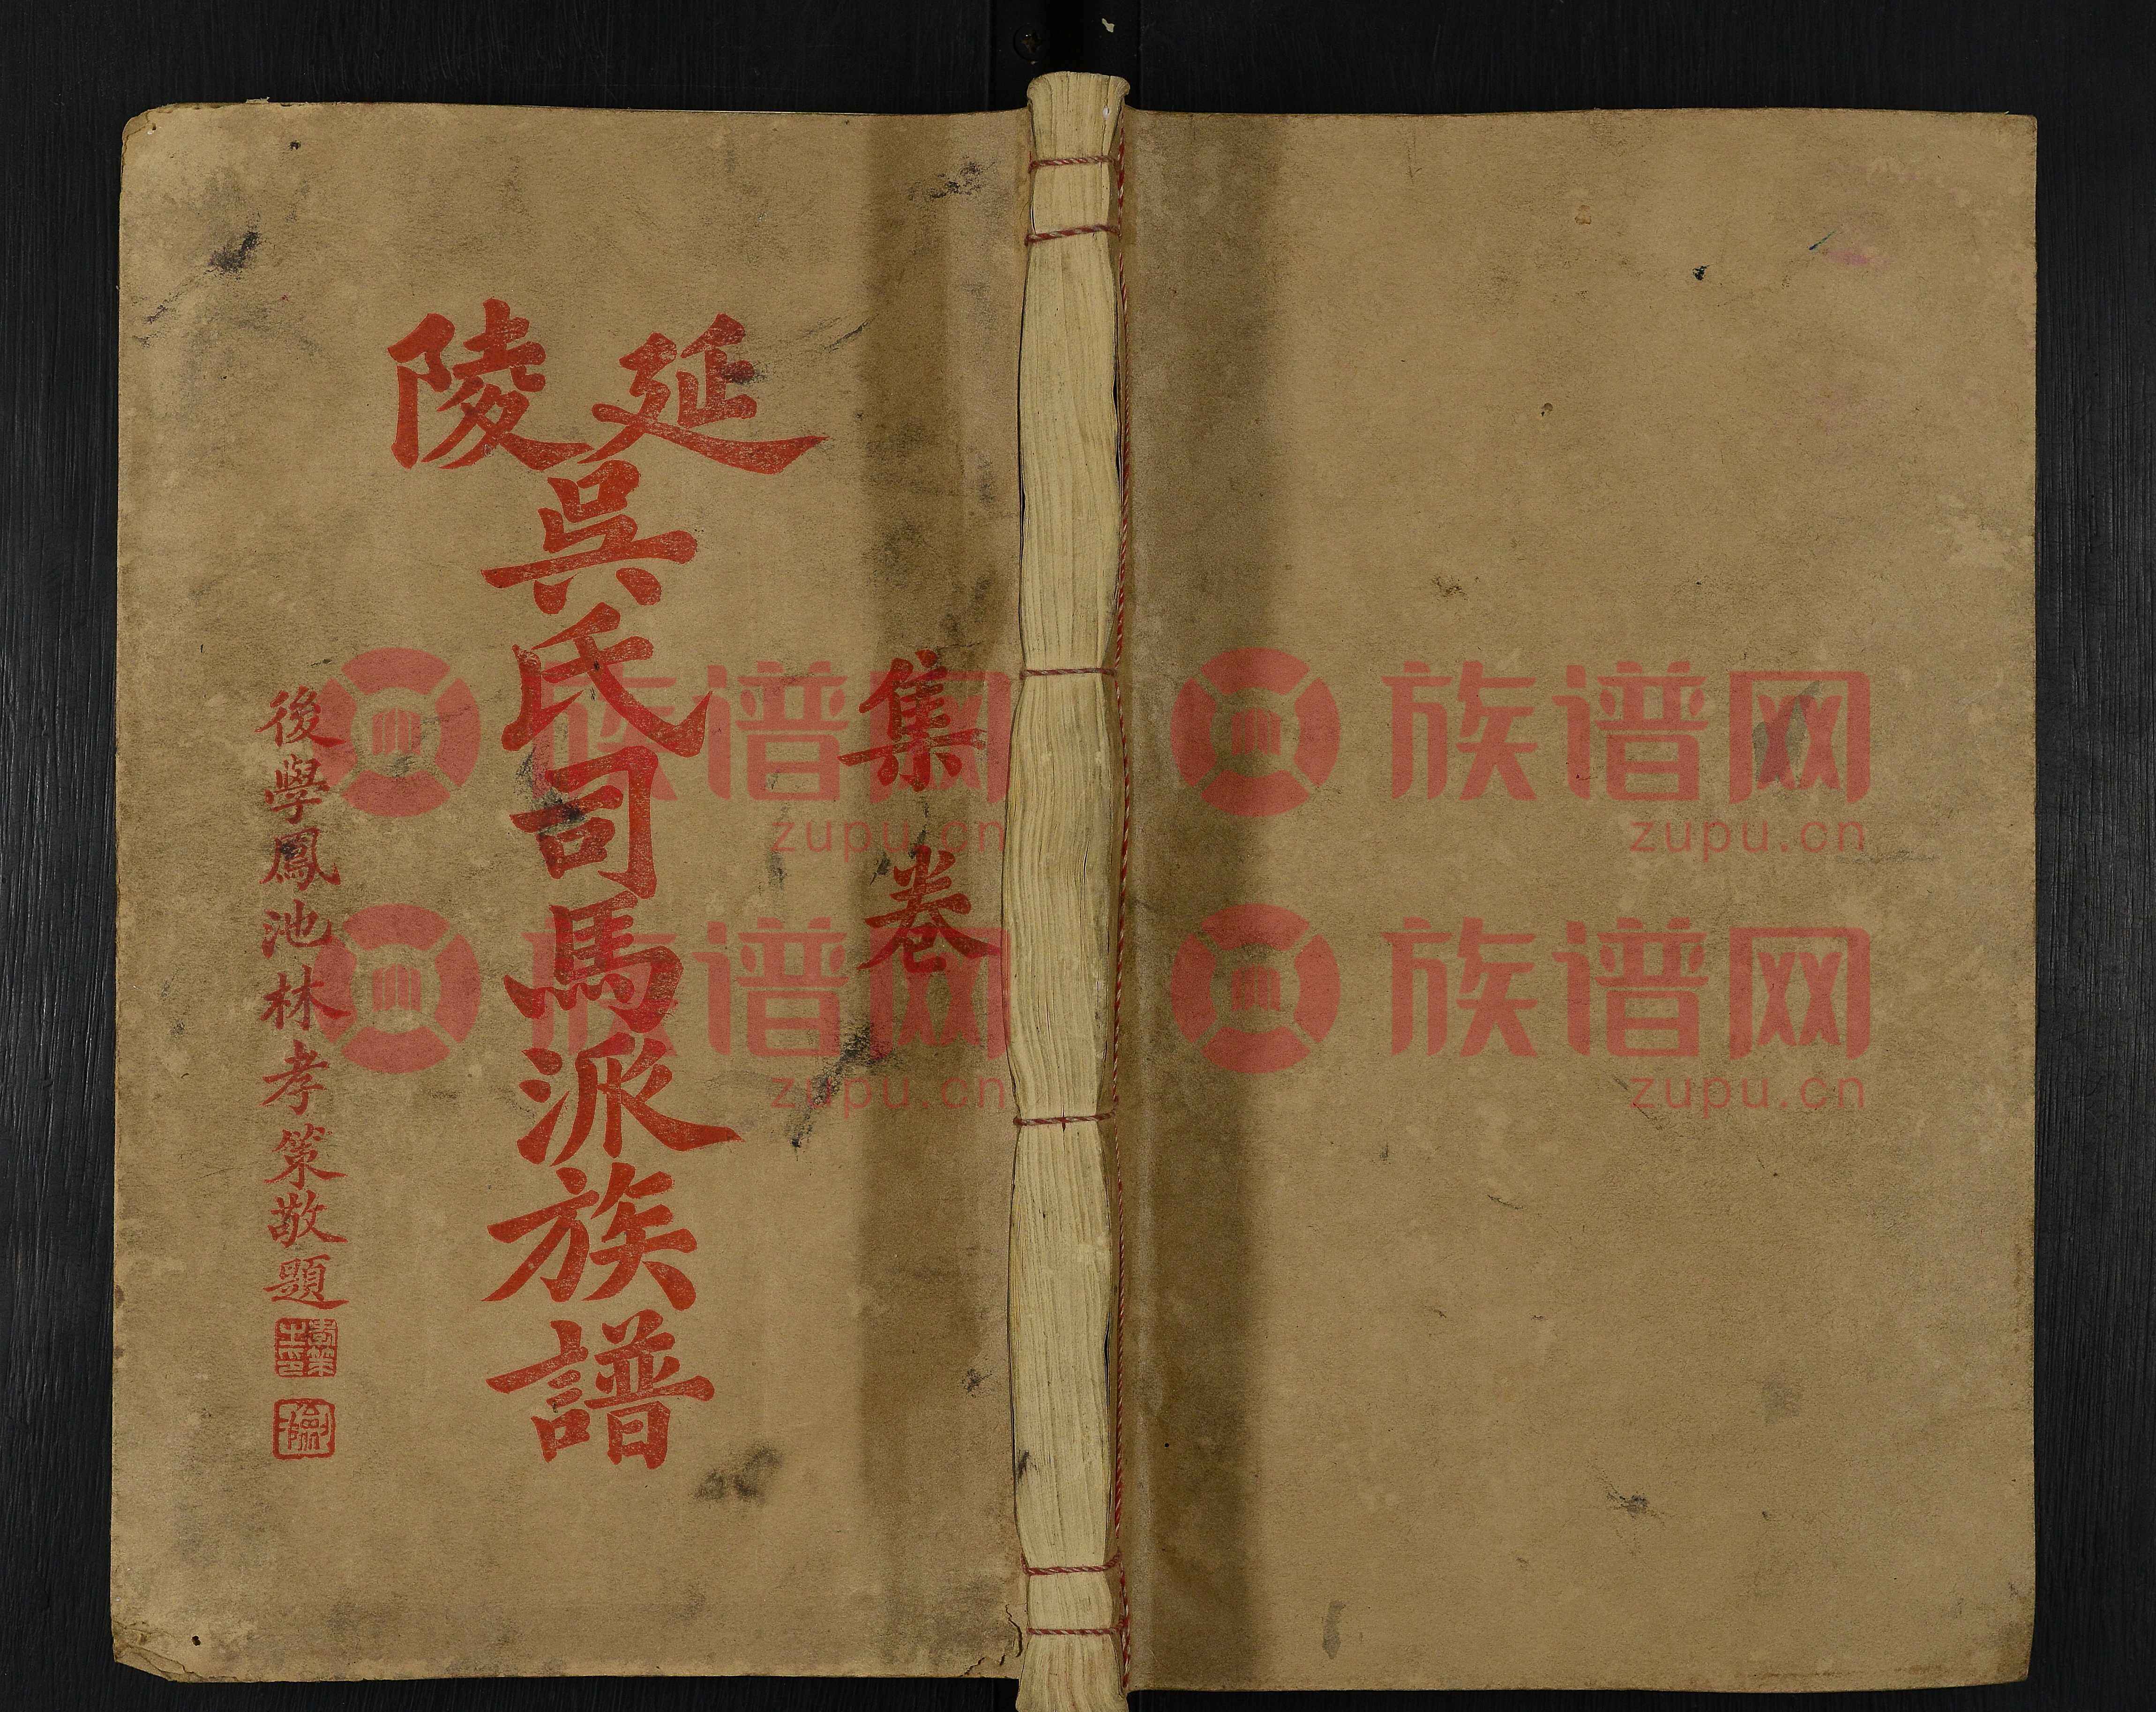 集卷
延陵
吳氏司馬派族譜
後學鳳池林孝策敬題
孝策
族谱网
zupu.cn
族谱网
zupu.cn
族谱网
zupu.cn
族谱网
zupu.cn